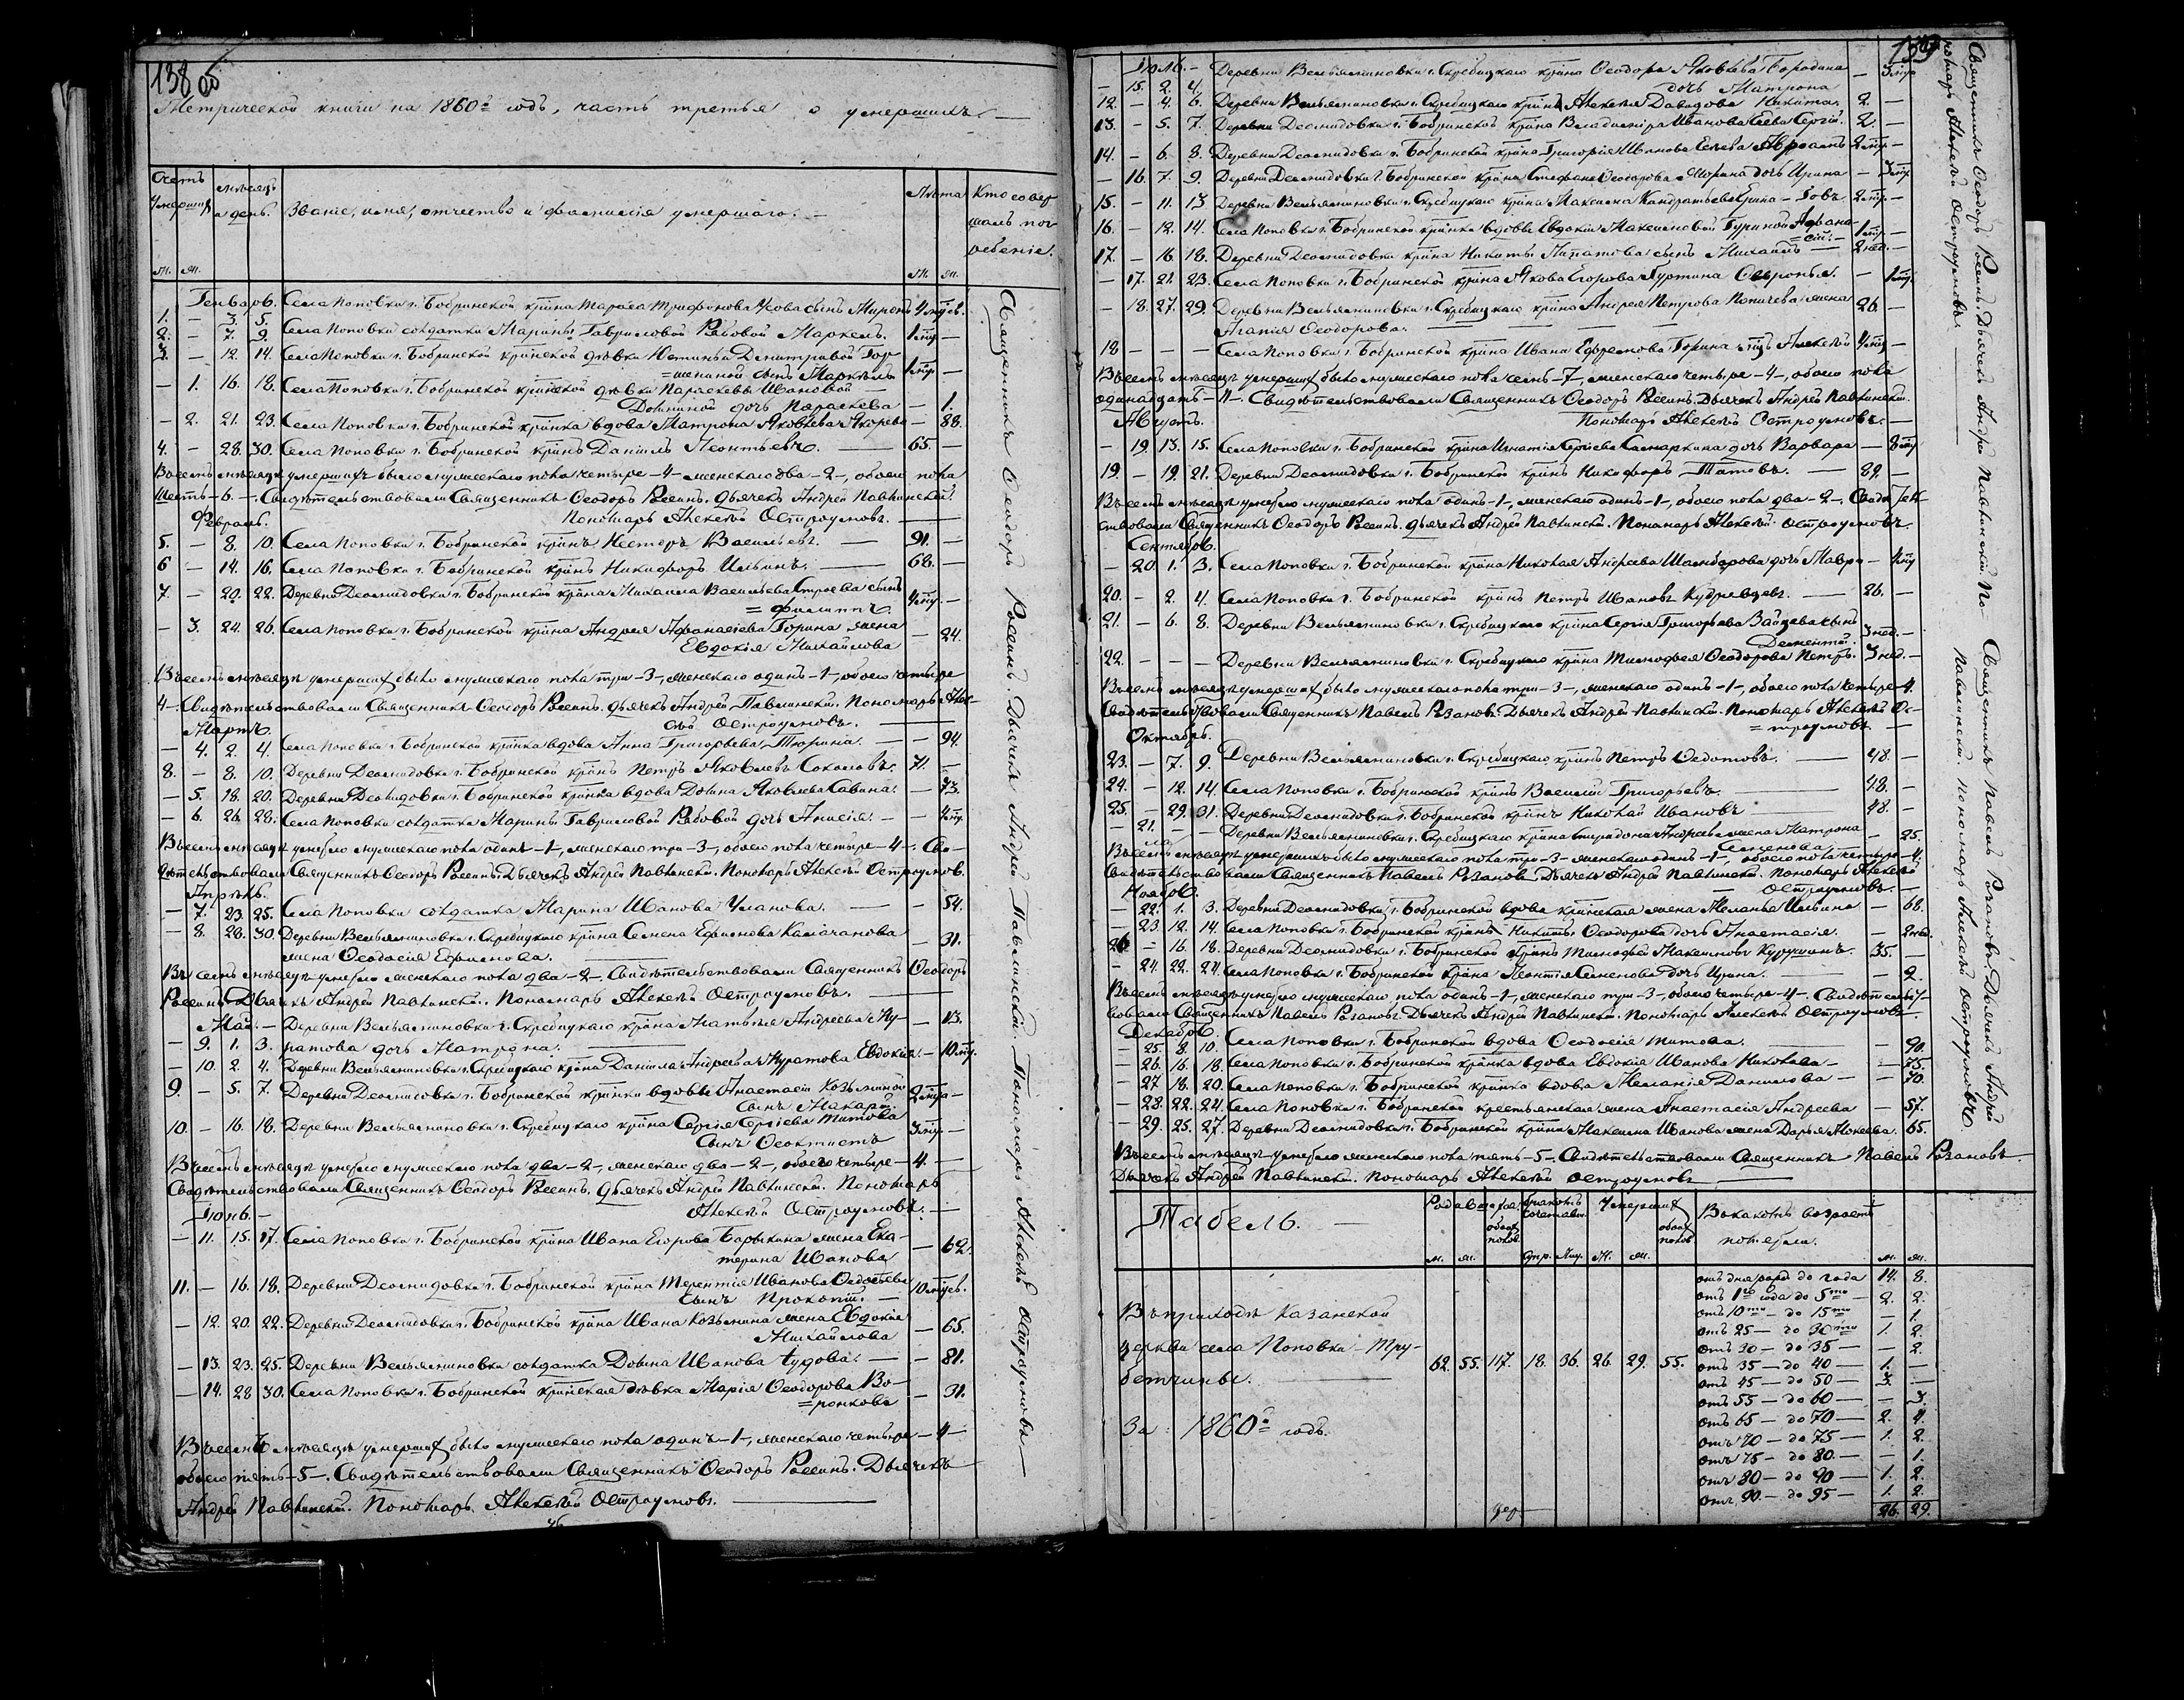 138 об
Метрической книги на 1860й годъ, часть третья о умершихъ
Счетъ умершихъ
мѣсяцъ и день.
Званіе, имя, отчество и фамилія умершаго.
Лѣта
Кто совершалъ погребеніе.
м. ж. м. ж.
Генварь. Села Поповки г. Бобринской крѣна Тараса Трифонова Усова сынъ Миронъ 4 мѣс.
1. — 3. 5.
2. — 7. 9. Села Поповки солдатки Марины Гавриловой Рябовой Маркелъ. 1 мѣ —
3. — 12. 14. Села Поповки г. Бобринской крѣнской дѣвки Устиньи Димитріевой Гор-
=шениной сынъ Маркелъ 1 мѣ. —
— 1. 16. 18. Села Поповки г. Бобринской крѣнской дѣвки Параскевы Ивановой
дочь Параскева — 1.
— 2. 21. 23. Села Поповки г. Бобринской крѣнка вдова Матрона Яковлева — 88.
4. — 28. 30. Села Поповки г. Бобринской крѣнъ Даніилъ Леонтьевъ. 65. —
Въ семъ мѣсяцѣ умершихъ было мужескаго пола четыре — 4 — женскаго два — 2 —, обоего пола
шесть — 6 —. Свидѣтельствовали Священникъ Ѳеодоръ Россинъ. Дьячекъ Андрей Павлинскій.
Февраль. Пономарь Алексѣй Остроумовъ.
5. — 8. 10. Села Поповки г. Бобринской крѣнъ Несторъ Васильевъ. — 91. —
6 — 14. 16. Села Поповки г. Бобринской крѣнъ Никифоръ Ильинъ. — 68. —
7. — 20. 22. Деревни Деомидовки г. Бобринской крѣна Михаила Васильева сынъ
= Филиппъ. 4 мѣ. —
— 3. 24. 26. Села Поповки г. Бобринской крѣна Андрея Афанасіева Горина жена
Евдокія Михайлова — 24.
Въ семъ мѣсяцѣ умершихъ было мужескаго пола три — 3 —, женскаго одинъ — 1 —, обоего четыре
4 —. Свидѣтельствовали Священникъ Ѳеодоръ Россинъ. Дьячекъ Андрей Павлинскій. Пономарь Алек-
Мартъ. сѣй Остроумовъ.
— 4. 2. 4. Села Поповки г. Бобринской крѣнка вдова Анна Григорьева Тюрина. — — 94.
8. — 8. 10. Деревни Деомидовки г. Бобринской крѣнъ Петръ Яковлевъ Соколовъ. 71. —
— 5. 18. 20. Деревни Деомидовки г. Бобринской крѣнка вдова Домна Яковлева Савина. — 73.
— 6. 26. 28. Села Поповки солдатки Марины Гавриловой Рябовой дочь Анисія. —
Въ семъ мѣсяцѣ умерло мужескаго пола одинъ — 1 —, женскаго три — 3 —, обоего пола четыре — 4 —. Сви-
дѣтельствовали Священникъ Ѳеодоръ Россинъ. Дьячекъ Андрей Павлинскій. Пономарь Алексѣй Остроумовъ.
Апрѣль.
— 7. 23. 25. Села Поповки солдатка Марина Иванова Уланова. — — 54.
— 8. 28. 30. Деревни Вельяминовки г. Скребицкаго крѣна Семена Ефимова Калачанова
жена Ѳеодосія Ефимова. — 31.
Въ семъ мѣсяцѣ умерло женскаго пола два — 2 —. Свидѣтельствовали Священникъ Ѳеодоръ
Россинъ. Дьячекъ Андрей Павлинскій. Пономарь Алексѣй Остроумовъ.
Май. — Деревни Вельяминовки г. Скребицкаго крѣна Матвѣя Андреева Ку- — 13.
— 9. 1. 3. ратова дочь Матрона.
— 10. 2. 4. Деревни Вельяминовки г. Скребицкаго крѣна Даніила Андреева Куратова Евдокія. — 10 мѣ.
9. — 5. 7. Деревни Деомидовки г. Бобринской крѣнки вдовы Анастасіи Козьминой
сынъ Макарій.
10. — 16. 18. Деревни Вельяминовки г. Скребицкаго крѣна Сергія Сергіева Титова
Сынъ Ѳеоктистъ 3 мѣ. —
Въ семъ мѣсяцѣ умерло мужескаго пола два — 2 —, женскаго два — 2 —, обоего четыре — 4. —
Свидѣтельствовали Священникъ Ѳеодоръ Россинъ. Дьячекъ Андрей Павлинскій. Пономарь
Іюнь. — Алексѣй Остроумовъ. —
— 11. 15. 17. Села Поповки г. Бобринской крѣна Ивана Егорова Барыкина жена Ека-
терина Иванова — 62.
11. — 16. 18. Деревни Деомидовки г. Бобринской крѣна Терентія Иванова
Сынъ Прокопій. — 10 мѣс.
— 12. 20. 22. Деревни Деомидовки г. Бобринской крѣна Ивана Козьмина жена Евдокія
Михайлова — 65.
— 13. 23. 25. Деревни Вельяминовки солдатка Домна Иванова Чудова. — — 81.
— 14. 28 30. Села Поповки г. Бобринской крѣнская дѣвка Марія Ѳеодорова Во-
=ронкова — 31.
Въ семъ мѣсяцѣ умершихъ было мужескаго пола одинъ — 1 —, женскаго четыре — 4 —
обоего пять — 5 —. Свидѣтельствовали Священникъ Ѳеодоръ Россинъ. Дьячекъ
Андрей Павлинскій. Пономарь Алексѣй Остроумовъ.
Священникъ Ѳеодоръ Россинъ. Дьячекъ Андрей Павлинскій. Пономарь Алексѣй Остроумовъ
139
Іюль. — Деревни Вельяминовки г. Скребицкаго крѣна Ѳеодора Яковлева Бородина
— 15. 2. 4. дочь Матрона — 3 мѣ
12. — 4. 6. Деревни Вельяминовки г. Скребицкаго крѣна Алексѣя Давидова Никита. 2. —
13. — 5. 7. Деревни Деомидовки г. Бобринской крѣна Владиміра Иванова Сергій. 2. —
14. — 6. 8. Деревни Деомидовки г. Бобринской крѣна Григорія Иванова Авраамъ 2 мѣ. —
— 16. 7. 9. Деревни Деомидовки г. Бобринской крѣна Стефана Ѳеодорова дочь Ирина — 3 мѣ
15. — 11. 13 Деревни Вельяминовки г. Скребицкаго крѣна Максима Кандратьева — Іовъ. 2 мѣ. —
16. — 12. 14. Села Поповки г. Бобринской крѣнки вдовы Евдокіи Максимовой Гуриной Афана-
=сій. — 1 мѣ. —
17. — 16. 18. Деревни Деомидовки крѣна Никиты Ипатова сынъ Михаилъ — 2 нед. —
— 17. 21. 23. Села Поповки г. Бобринской крѣна Якова Егорова — 1 мѣ.
— 18. 27. 29. Деревни Вельяминовки г. Скребицкаго крѣна Андрея Петрова жена 26. —
Агапія Ѳеодорова.
18 — — — Села Поповки г. Бобринской крѣна Ивана Ефремова Горина Алексѣй 4 мѣ —
Въ семъ мѣсяцѣ умершихъ было мужескаго пола семь — 7 —, женскаго четыре — 4 —, обоего пола
одинадцать — 11 —. Свидѣтельствовали Священникъ Ѳеодоръ Россинъ. Дьячекъ Андрей Павлинскій.
Августъ. Пономарь Алексѣй Остроумовъ. —
— 19. 13. 15. Села Поповки г. Бобринской крѣна Игнатія Сергіева дочь Варвара — 8 мѣ
19. — 19. 21. Деревни Деомидовки г. Бобринской крѣнъ Никифоръ Татовъ. — 82. —
Въ семъ мѣсяцѣ умерло мужескаго пола одинъ — 1 —, женскаго одинъ — 1 —, обоего пола два — 2 —. Свидѣтель-
ствовали Священникъ Ѳеодоръ Россинъ. Дьячекъ Андрей Павлинскій. Пономарь Алексѣй Остроумовъ.
Сентябрь.
— 20. 1. 3. Села Поповки г. Бобринской крѣна Николая Андреева дочь Мавра —
20. — 2. 4. Села Поповки г. Бобринской крѣнъ Петръ Ивановъ Кудрявцевъ. — 26. —
21. — 6. 8. Деревни Вельяминовки г. Скребицкаго крѣна Сергія Григорьева Зайцева сынъ
Дементій. 3 нед. —
22. — — — Деревни Вельяминовки г. Скребицкаго крѣна Тимофея Ѳеодорова Петръ. 3 нед. —
Въ семъ мѣсяцѣ умершихъ было мужескаго пола три — 3 —, женскаго одинъ — 1 —, обоего пола четыре — 4.
Свидѣтельствовали Священникъ Павелъ Розановъ. Дьячекъ Андрей Павлинскій. Пономарь Алексѣй Ос-
Октябрь. = троумовъ. —
23. — 7. 9. Деревни Вельяминовки г. Скребицкаго крѣнъ Петръ Ѳедотовъ. — 48. —
24. — 12. 14. Села Поповки г. Бобринской крѣнъ Василій Григорьевъ. — 48. —
25. — 29. 31. Деревни Деомидовки г. Бобринской крѣнъ Николай Ивановъ — 48. —
— 21. — — Деревни Вельяминовки г. Скребицкаго крѣна Спиридона Андреева жена Матрона
Семенова — — 25
Въ семъ мѣсяцѣ умершихъ было мужескаго пола три — 3 — женскаго одинъ — 1 —, обоего пола четыре — 4.
Свидѣтельствовали Священникъ Павелъ Розановъ. Дьячекъ Андрей Павлинскій. Пономарь Алексѣй
Ноябрь. — Остроумовъ. —
— 22. 1. 3. Деревни Деомидовки г. Бобринской вдова крѣнская жена Меланья Ильина — 68.
— 23. 12. 14. Села Поповки г. Бобринской крѣнъ Никиты Ѳеодорова дочь Анастасія. — 2 нед.
26 — 16. 18. Деревни Деомидовки г. Бобринской крѣнъ Тимофей Максимовъ 35. —
— 24. 22. 24. Села Поповки г. Бобринской крѣна Леонтія Семенова дочь Ирина. — 2.
Въ семъ мѣсяцѣ умерло мужескаго пола одинъ — 1 —, женскаго три — 3 —, обоего четыре — 4 —. Свидѣтельст-
вовали Священникъ Павелъ Розановъ. Дьячекъ Андрей Павлинскій. Пономарь Алексѣй Остроумовъ
Декабрь.
— 25. 8. 10. Села Поповки г. Бобринской вдова Ѳеодосія Титова. — 90.
— 26. 16. 18. Села Поповки г. Бобринской крѣнка вдова Евдокія Иванова Николаева — — 75.
— 27. 18. 20. Села Поповки г. Бобринской крѣнка вдова Меланія Данилова — — 70.
— 28. 22. 24. Села Поповки г. Бобринской крестьянская жена Анастасія Андреева — 57.
— 29. 25. 27. Деревни Деомидовки г. Бобринской крѣна Максима Иванова жена Дарья Мокеева. 65.
Въ семъ мѣсяцѣ умерло женскаго пола пять — 5 —. Свидѣтельствовали Священникъ Павелъ Розановъ.
Дьячекъ Андрей Павлинскій. Пономарь Алексѣй Остроумовъ
Священникъ Ѳеодоръ Россинъ. Дьячекъ Андрей Павлинскій По-
номарь Алексѣй Остроумовъ.
Священникъ Павелъ Розановъ. Дьячекъ Андрей
Павлинскій. Пономарь Алексѣй Остроумовъ.
Табель. —
Родившихся
обоих половъ
браковъ сочетавш.
Умершихъ
обоих половъ
Въ какомъ возрастѣ померли.
м. ж. м. ж. м. ж.
Въ приходѣ Казанской
церкви села Поповки — Тру-
бетчины.
За 1860й годъ.
62. 55. 117. 18. 36. 26. 29. 55.
отъ дня рожд. до года 14. 8.
отъ 1го года до 5ти — 2. 2.
отъ 10ти — до 15ти — 1.
отъ 25 — до 30ти 1. 2.
отъ 30 — до 35 — — 2.
отъ 35 — до 40 — 1. —
отъ 45 — до 50 — 3. —
отъ 55 — до 60 — — 3.
отъ 65 — до 70 — 2. 4.
отъ 70 — до 75 — 1. 2.
отъ 75 — до 80. — — 1.
отъ 80 — до 90 — 1. 2.
отъ 90. — до 95 — 1. 2.
26. 29.